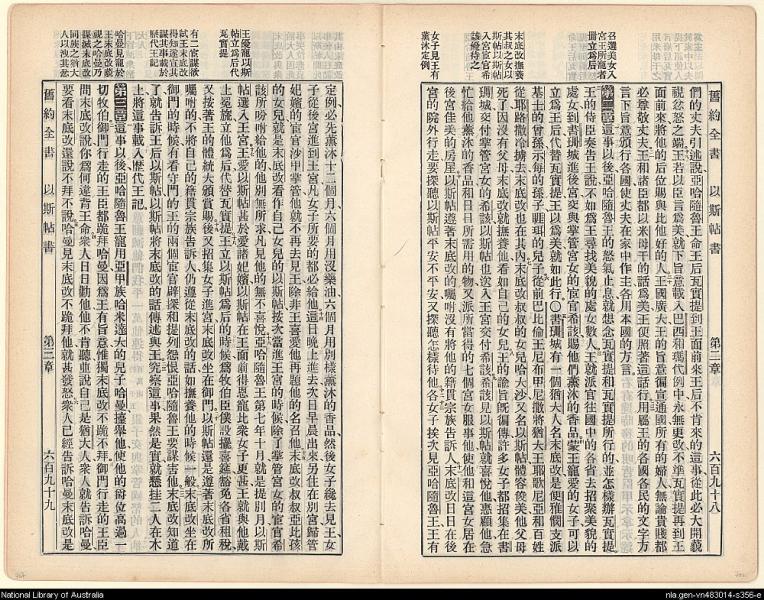 舊約全書 以斯帖書 第二章 六百九十八
召選美女入宮王所寵者冊立爲后
末底改撫養其叔之女以斯帖以斯帖入宮宦官希該優待之
女子見王有薰沐定例
們的丈夫引述說亞哈隨魯王命王后瓦實提到王面前來王后不肯來的這事從此必大開藐
視忿怒之端王若以臣言爲美就下旨意載入巴西和瑪代例中永無更改不準瓦實提再到王
面前來將他的后位賜與比他好的人王國廣大王的旨意徧宣通國所有的婦人無論貴賤都
必尊敬丈夫王和諸臣都以米母干的話爲美王便照着這話行用屬王的各國各民的文字方
言下旨意頒行各國使丈夫在家中作主各用本國的方言
第二章這事以後亞哈隨魯王的怒氣止息就想念瓦實提和瓦實提所行的並怎樣辦瓦實提
王的侍臣奏告王說不如爲王尋找美貌的處女數人王就派官往國中的各省去招聚美貌的
處女到書珊城進後宮交與掌管宮女的宦官希該賜他們薰沐的香品蒙王寵愛的女子可以
立爲王后代替瓦實提王以爲美就如此行○書珊城有一個猶大人名末底改是便雅憫支派
基士的曾孫示每的孫子睚珥的兒子從前巴比倫王尼布甲尼撒將猶大王耶歌尼亞和百姓
從耶路撒冷擄去末底改也在其內末底改叔叔的女兒哈大沙又名以斯帖體容俊美他父母
死了因沒有父母末底改就撫養他看如自己的女兒王的諭旨既徧傳許多女子都招集在書
珊城交付掌管宮女的希該以斯帖也選入王宮交付希該希該見以斯帖就喜悅他惠顧他急
忙給他薰沐的香品和日日所需用的物又派所當得的七個宮女服事他使他和這宮女居在
後宮佳美的房屋以斯帖遵著末底改的囑咐沒有將他的籍貫宗族告訴人末底改日日在後
宮的院外行走要探聽以斯帖平安不平安又探聽怎樣待他各女子挨次見亞哈隨魯王王有
王優寵以斯帖立爲后代瓦實提
有二宦官謀欲試王末底改得知遂宣其謀其事載於歷代王記
哈曼見寵於王末底改藐視之哈曼乃謀滅末底改同族之猶大人以洩其忿
定例必先薰沐十二個月六個月用沒藥油六個月用別樣薰沐的香品然後女子纔去見王女
子從後宮進到王宮凡女子所要的都必給他這日晚上進去次日早晨出來另住在別宮歸管
妃嬪的宦官沙甲掌管他就不再去見王除非王喜愛他再題他的名召他末底改叔叔亞比孩
的女兒就是末底改看作自己女兒的以斯帖按次當進王宮的時候除了掌管宮女的宦官希
該所吩咐給他的他別無所求凡見他的無不喜悅亞哈隨魯王第七年十月就是提別月以斯
帖選入王宮王愛以斯帖甚於愛諸妃嬪以斯帖在王面前得恩寵比衆女子更甚王就與他戴
上冕旒立他爲后代替瓦實提王立以斯帖爲后的時候爲牧伯臣僕設擺喜筵豁免各省租稅
又按著王的體統大頒賞賜後又招集女子進宮末底改坐在御門以斯帖還是遵著末底改所
囑咐的不將自己的籍貫宗族告訴人仍遵從末底改的話如撫養他的時候一般末底改坐在
御門的時候有看守門的王的兩個宦官辟探和提列怨恨亞哈隨魯王要謀害他末底改知道
了就告訴王后以斯帖以斯帖將末底改的話傳述與王究察這事果然是實就懸挂二人在木
上將這事載入歷代王記
第三章這事以後亞哈隨魯王寵用亞甲族哈米達大的兒子哈曼擡舉他使他的爵位高過一
切牧伯御門行走的王臣都跪拜哈曼因爲王有旨意惟獨末底改不跪不拜御門行走的王臣
問末底改說你爲何違背王命衆人日日勸他他不肯聽並說自己是猶大人衆人就告訴哈曼
要看末底改還說不拜不說哈曼見末底改不跪拜他就甚發怒衆人已經告訴哈曼末底改是
舊約全書 以斯帖書 第三章 六百九十九
National Library of Australia
nla.gen-vn483014-s356-e